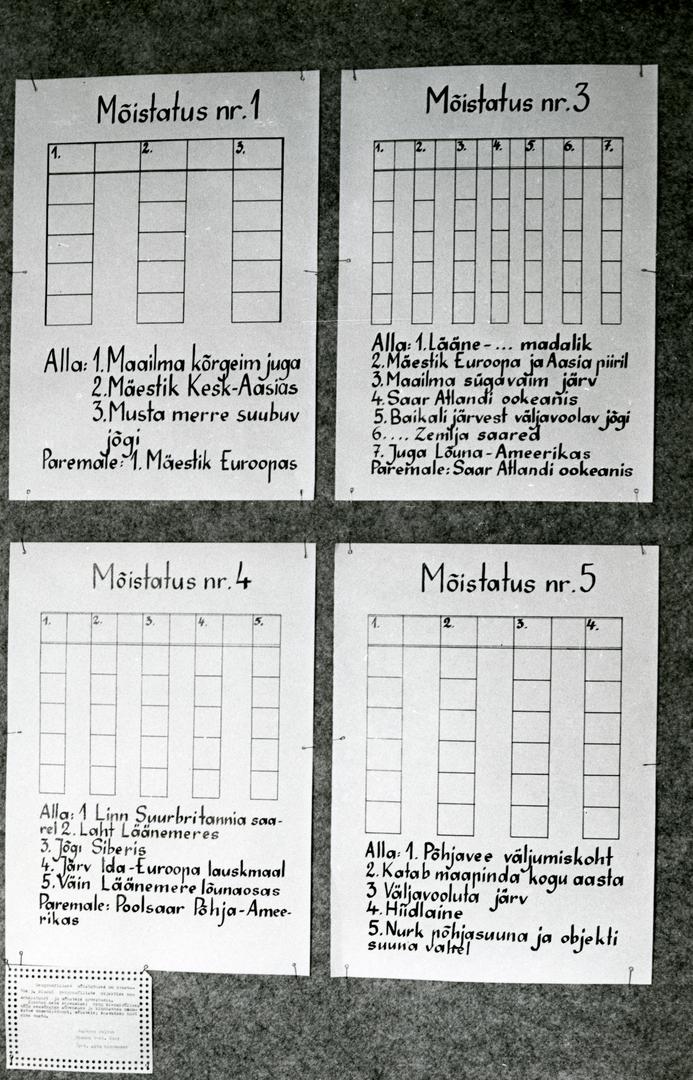 Mõistatus nr.1
1. 2. 3.
Alla: 1. Maailma kõrgeim juga
2. Mäestik Kesk-Aasias
3. Musta merre suubuv
jõgi
Paremale: 1. Mäestik Euroopas
Mõistatus nr.3
1. 2. 3. 4. 5. 6. 7.
Alla: 1. Lääne-... madalik
2. Mäestik Euroopa ja Aasia piiril
3. Maailma sügavaim järv
4. Saar Atlandi ookeanis
5. Baikali järvest väljavoolav jõgi
6. ... Zemlja saared
7. Juga Lõuna-Ameerikas
Paremale: Saar Atlandi ookeanis
Mõistatus nr.4
1. 2. 3. 4. 5.
Alla: 1 Linn Suurbritannia saa-
rel 2. Laht Läänemeres
3. Jõgi Siberis
4. Järv Ida-Euroopa lauskmaal
5. Väin Läänemere lõunaosas
Paremale: Poolsaar Põhja-Amee-
rikas
Mõistatus nr.5
1. 2. 3. 4.
Alla: 1. Põhjavee väljumiskoht
2. Katab maapinda kogu aasta
3 Väljavooluta järv
4. Hiidlaine
5. Nurk põhjasuuna ja objekti
suuna vahel